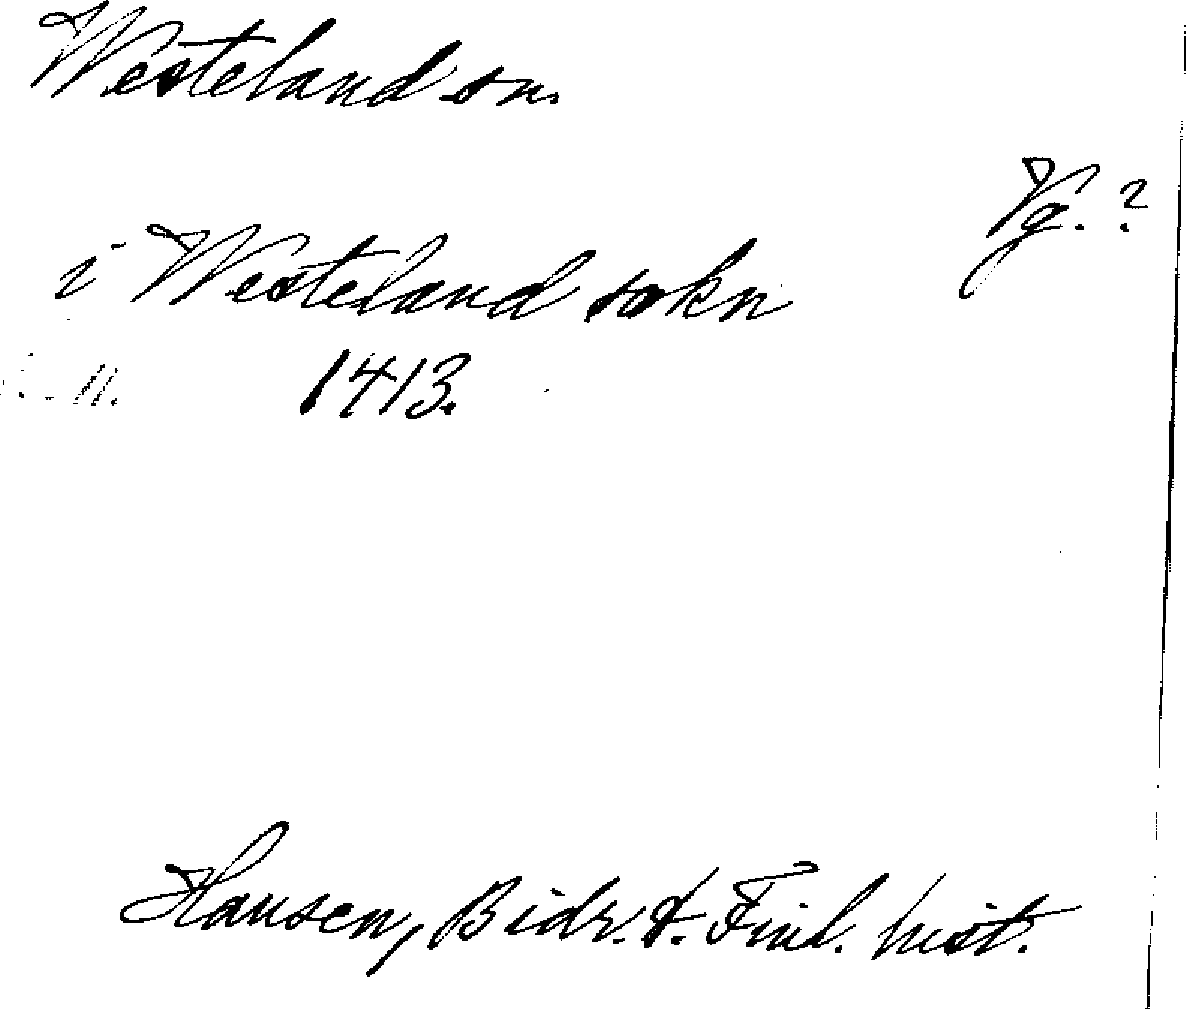 Westeland sn.
Vg. ?
i Westeland sokn
1413.
Hausen, Bidr. t. Finl. hist.